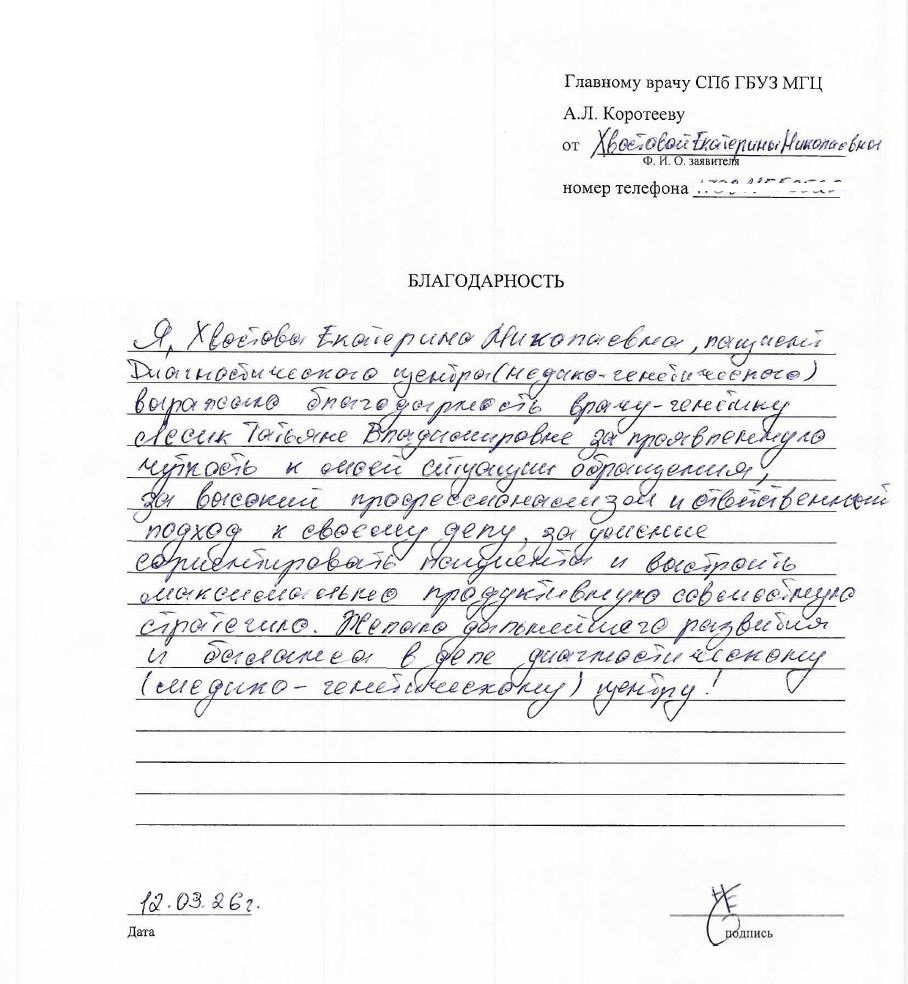 Главному врачу СПб ГБУЗ МГЦ
А.Л. Коротееву
от Хвостовой Екатерины Николаевна
Ф. И. О. заявителя
номер телефона
БЛАГОДАРНОСТЬ
Я, Хвостова Екатерина Николаевна, пациент
Диагностического центра (медико-генетического)
выражаю благодарность врачу-генетику
Лесик Татьяне Владимировне за проявленную
чуткость к моей ситуации обращения,
за высокий профессионализм и ответственный
подход к своему делу, за умение
сориентировать пациента и выстроить
максимально продуктивную совместную
стратегию. Желаю дальнейшего развития
и баланса в деле диагностическому
(медико-генетическому) центру!
12.03.26г.
Дата
подпись